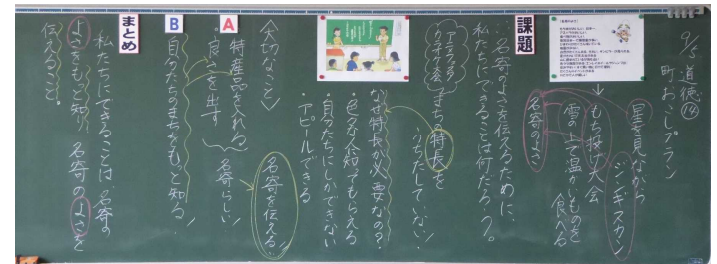 9/5 道徳⑭
町おこしプラン
星を見ながら
ジンギスカン
もち投げ大会
雪の上で温かいものを
食べる
名寄のよさ
課題
名寄のよさを伝えるために、
私たちにできることは何だろう?。
まちの特長を
いちだしていない!
なぜ特長が必要なの?
・色々な人に知ってもらえる
・自分たちにしかできない
・アピールできる
〈大切なこと〉
A
特産品を入れる
良さを出す
名寄らしい!
名寄を伝える!
B
自分たちのまちをもっと知る!
まとめ
私たちにできることは、名寄の
よさをもっと知り、名寄のよさを
伝えること。